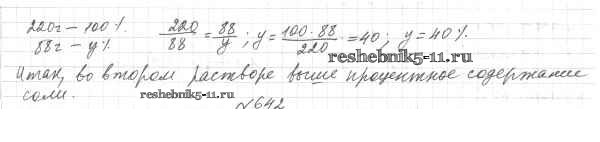 220г – 100%.
88г – y%
220/88 = 88/y; y = 100·88/220 = 40; y = 40%.
reshebnik5-11.ru
Итак, во втором растворе выше процентное содержание
соли.
reshebnik5-11.ru
№642